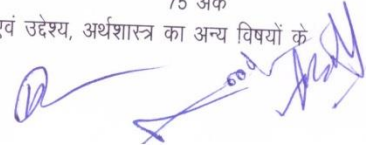 75 अंक
एवं उद्देश्य, अर्थशास्त्र का अन्य विषयों के